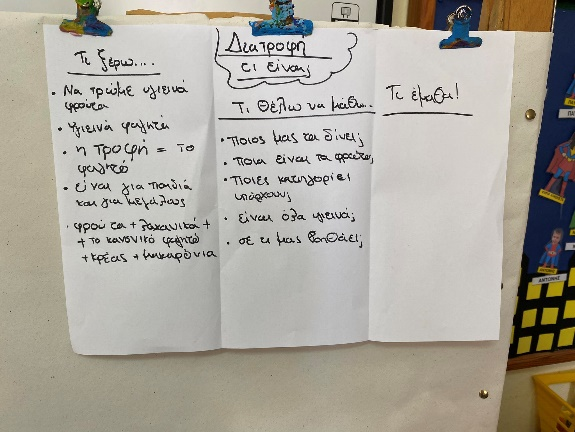 Διατροφή
τι είναι;
Τι ξέρω....
• Να τρώμε υγιεινά
φρούτα
• Υγιεινά φαγητά
• η τροφή = το
φαγητό
• είναι για παιδιά
και για μεγάλους
• φρούτα + λαχανικά +
+ το κανονικό φαγητό
+ κρέας + μακαρόνια
Τι θέλω να μάθω...
• Ποιος μας τα δίνει;
• ποια είναι τα φρούτα;
• Ποιες κατηγορίες
υπάρχουν;
• είναι όλα υγιεινά;
• σε τι μας βοηθάει;
Τι έμαθα!
ΑΝΤΩΝΗΣ